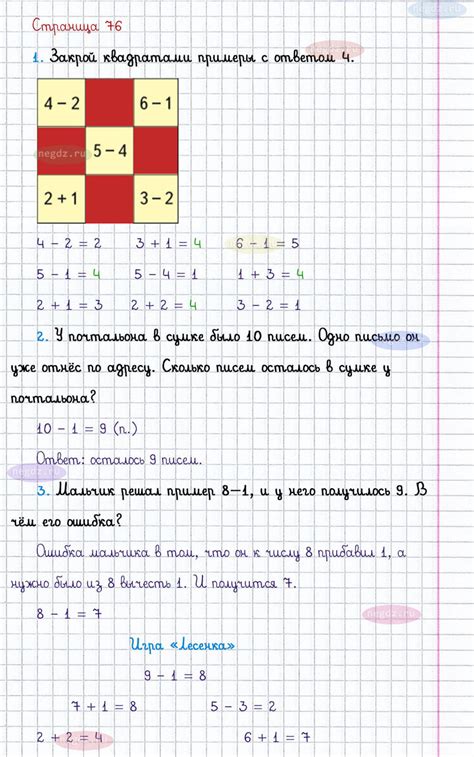 negdz.ru
Страница 76
1. Закрой квадратами примеры с ответом 4.
4 – 2 6 – 1
negdz.ru 5 – 4
2 + 1 3 – 2
4 – 2 = 2 3 + 1 = 4 6 – 1 = 5
5 – 1 = 4 5 – 4 = 1 1 + 3 = 4
2 + 1 = 3 2 + 2 = 4 3 – 2 = 1
2. У почтальона в сумке было 10 писем. Одно письмо он
уже отнёс по адресу. Сколько писем осталось в сумке у
почтальона?
10 – 1 = 9 (п.)
Ответ: осталось 9 писем.
negdz.ru
3. Мальчик решал пример 8–1, и у него получилось 9. В
чём его ошибка?
Ошибка мальчика в том, что он к числу 8 прибавил 1, а
нужно было из 8 вычесть 1. И получится 7.
8 – 1 = 7
negdz.ru
Игра «Лесенка»
9 – 1 = 8
7 + 1 = 8 5 – 3 = 2
2 + 2 = 4 6 + 1 = 7